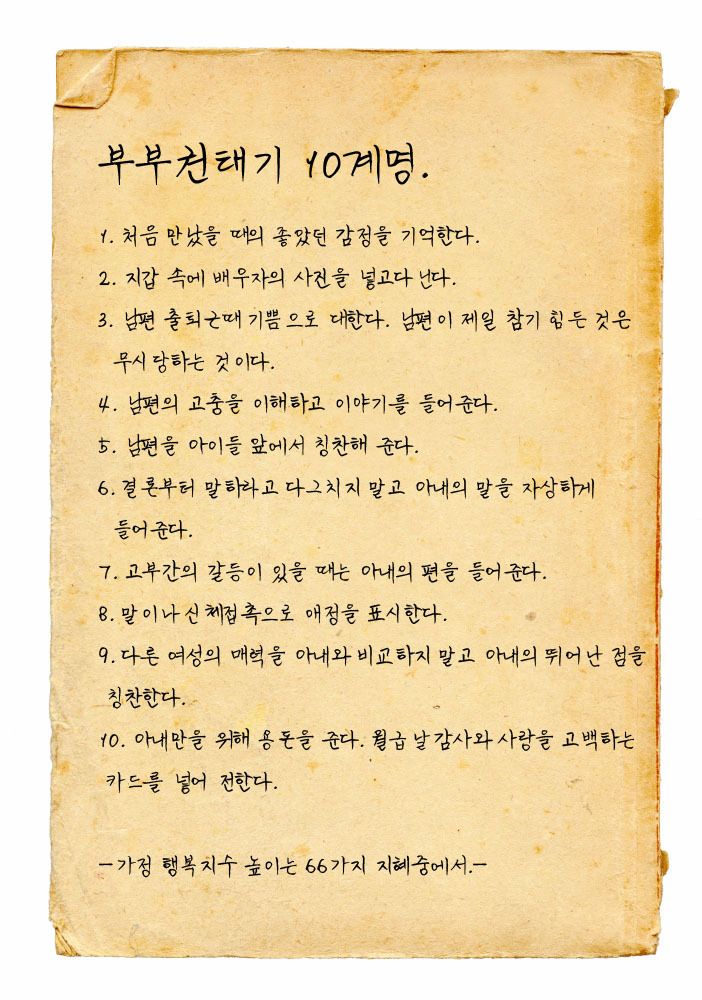 부부권태기 10계명.
1. 처음 만났을 때의 좋았던 감정을 기억한다.
2. 지갑 속에 배우자의 사진을 넣고다닌다.
3. 남편 출퇴근때 기쁨으로 대한다. 남편이 제일 참기 힘든 것은
무시당하는 것이다.
4. 남편의 고충을 이해하고 이야기를 들어준다.
5. 남편을 아이들 앞에서 칭찬해 준다.
6. 결론부터 말하라고 다그치지 말고 아내의 말을 자상하게
들어준다.
7. 고부간의 갈등이 있을 때는 아내의 편을 들어준다.
8. 말이나 신체접촉으로 애정을 표시한다.
9. 다른 여성의 매력을 아내와 비교하지 말고 아내의 뛰어난 점을
칭찬한다.
10. 아내만을 위해 용돈을 준다. 월급날 감사와 사랑을 고백하는
카드를 넣어 전한다.
-가정 행복지수 높이는 66가지 지혜중에서.-